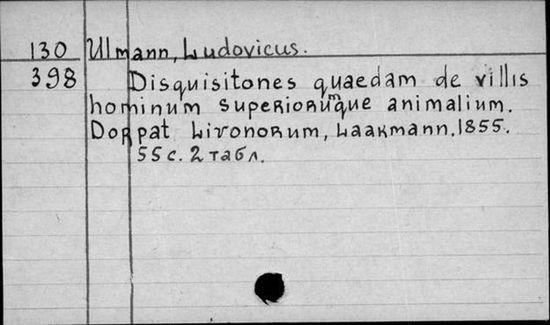 130 Ulmann, Ludovicus.
398 Disquisitones quaedam de villis
hominum superiorumque animalium.
Dorpat Livonorum, Laakmann. 1855.
55 с. 2 табл.